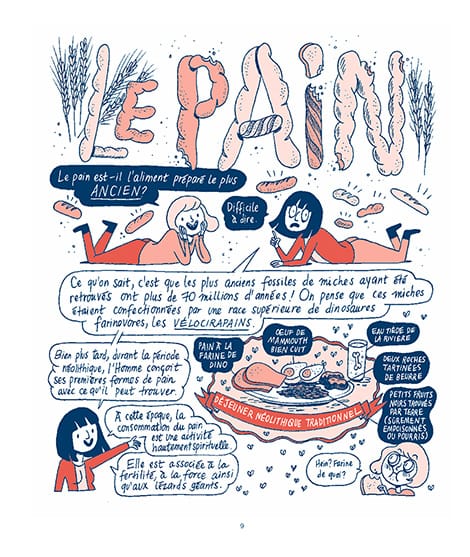 LE PAIN
Le pain est-il l'aliment préparé le plus
ANCIEN?
Difficile
à dire.
Ce qu'on sait, c'est que les plus anciens fossiles de miches ayant été
retrouvés ont plus de 70 millions d'années! On pense que ces miches
étaient confectionnées par une race supérieure de dinosaures
farinovores, les VÉLOCIRAPAINS.
Bien plus tard, durant la période
néolithique, l'Homme conçoit
ses premières formes de pain
avec ce qu'il peut trouver.
PAIN À LA
FARINE DE
DINO
ŒUF DE
MAMMOUTH
BIEN CUIT
EAU TIÈDE DE
LA RIVIÈRE
DEUX ROCHES
TARTINÉES
DE BEURRE
PETITS FRUITS
MÛRS TROUVÉS
PAR TERRE
(SÛREMENT
EMPOISONNÉS
OU POURRIS)
DÉJEUNER NÉOLITHIQUE TRADITIONNEL
À cette époque, la
consommation du pain
est une activité
hautement spirituelle.
Elle est associée à la
fertilité, à la force ainsi
qu'aux lézards géants.
Hein? Farine
de quoi?
9